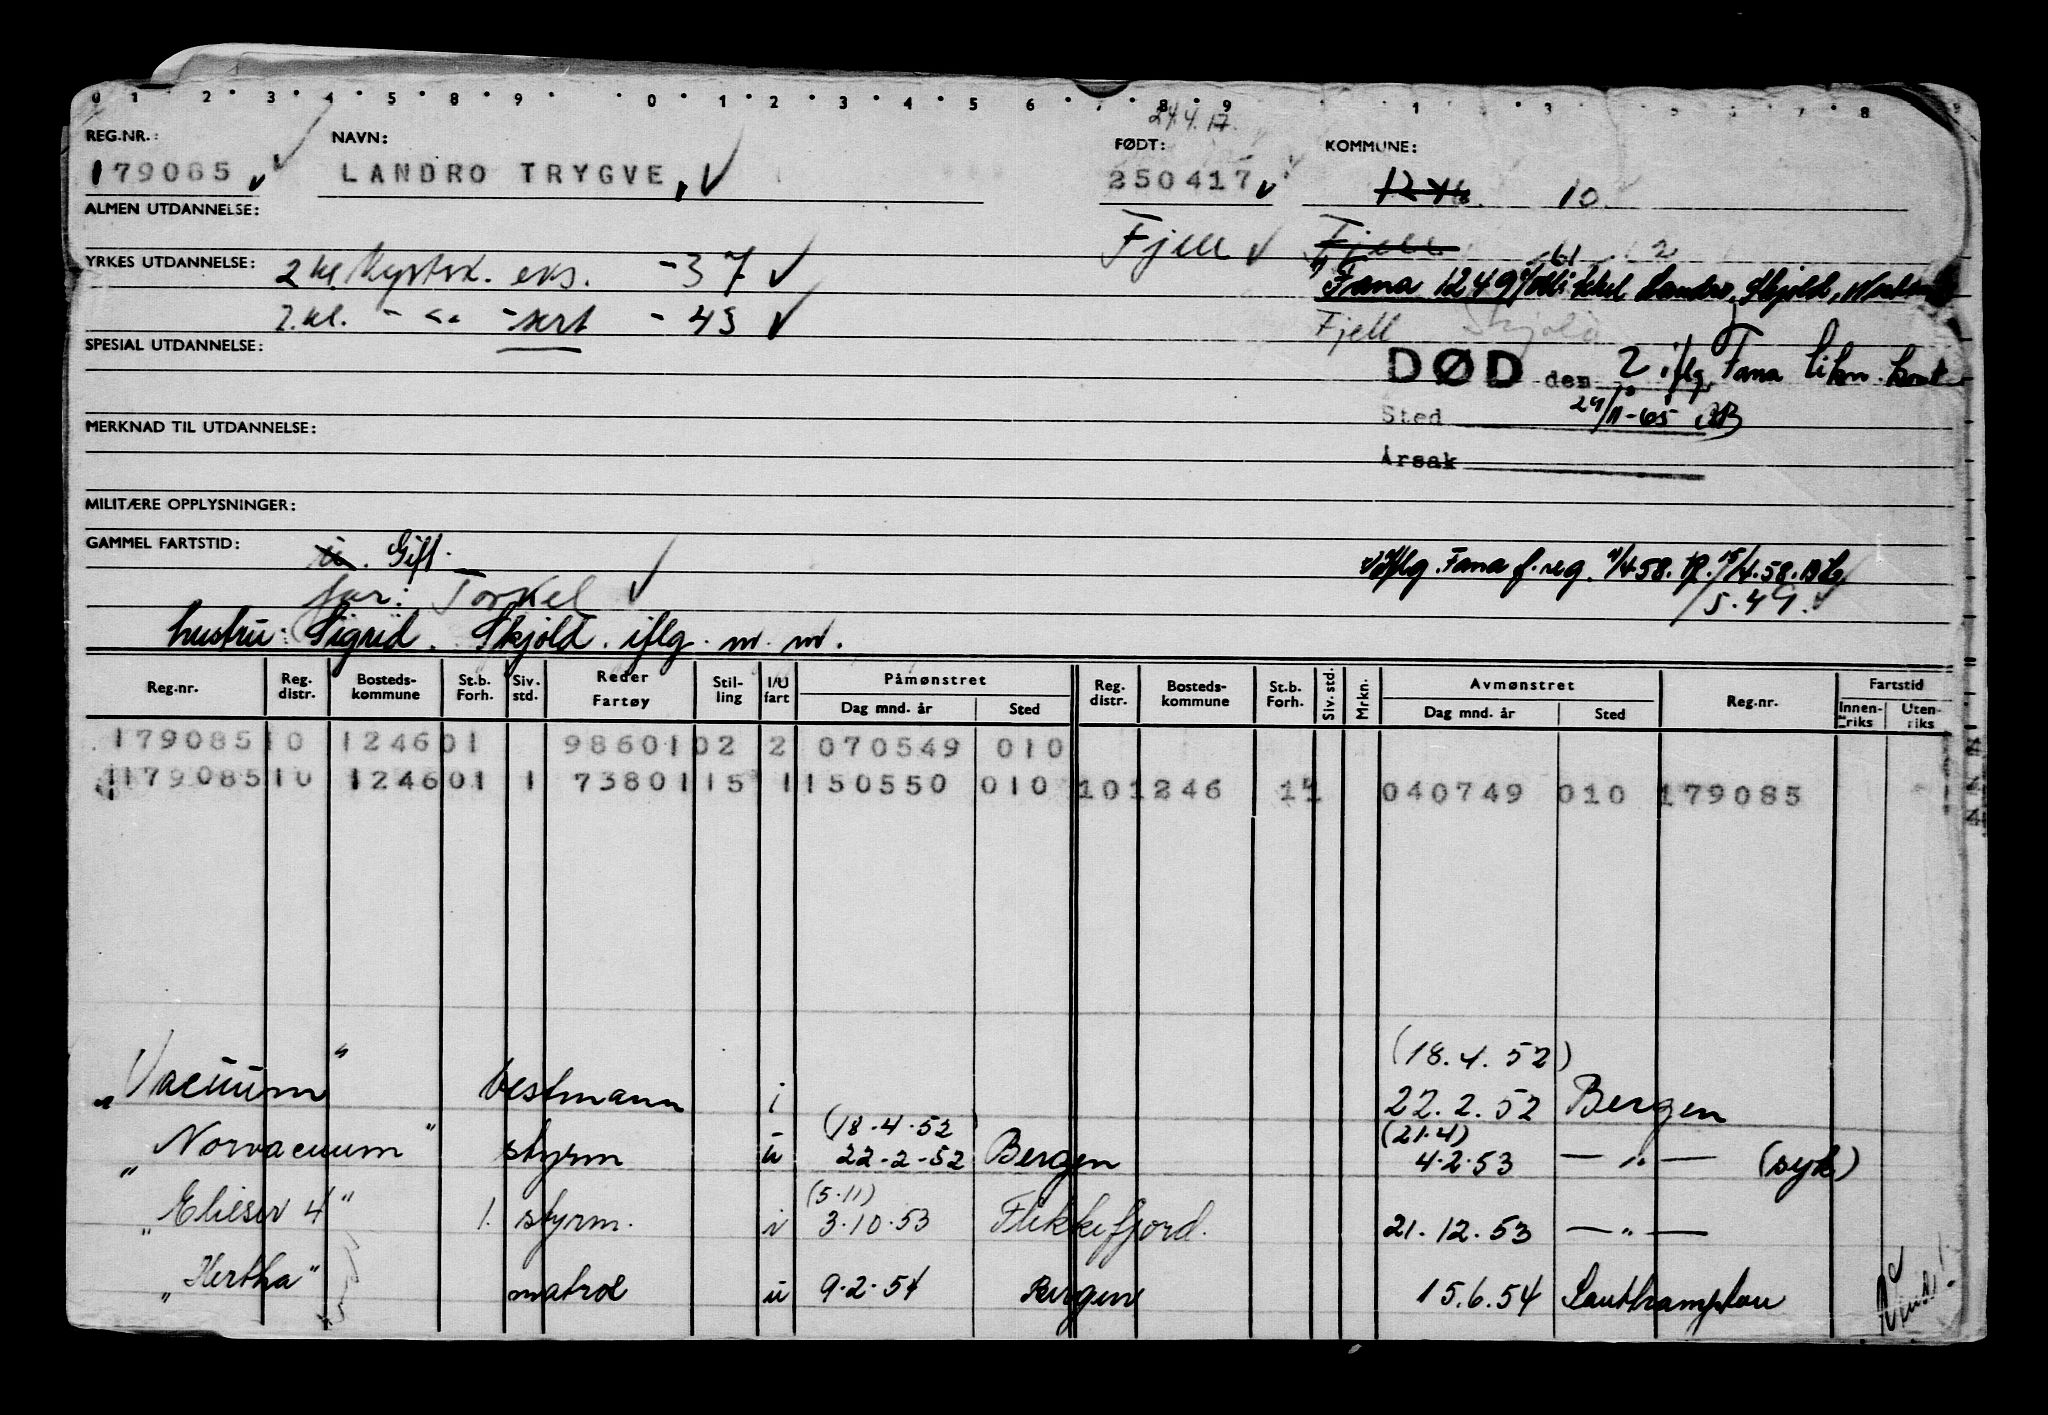 0 1 2 3 4 5 8 9 0 1 2 3 4 5 6 7 8 9 1 3 5 7 8
24.4.17.
REG.NR.: NAVN: FØDT: KOMMUNE:
179085 LANDRO TRYGVE 250417 1246 10
ALMEN UTDANNELSE: Fjell Fjell
YRKES UTDANNELSE: 2 kl kystsk. eks. - 37 61 2
Fana 1249 Landro, Skjold,
2.kl. - " - sert - 43 Fjell Skjold
SPESIAL UTDANNELSE: DØD den 2 iflg Fana likn. kont
Sted 24/11-65
MERKNAD TIL UTDANNELSE:
Årsak
MILITÆRE OPPLYSNINGER:
GAMMEL FARTSTID: u. Gift.
iflg. Fana f.reg. 11/4.58. 15/4.58.
far: Torkel 5.49.
hustru: Sigrid. Skjold. iflg. m. m.
Reg.nr. Reg. distr. Bosteds-kommune St.b. Forh. Siv. std. Reder Fartøy Stil-ling I/U fart Påmønstret Dag mnd. år Sted Reg. distr. Bosteds-kommune St.b. Forh. Siv. std. Mrkn. Avmønstret Dag mnd. år Sted Reg.nr. Fartstid Innen-riks Uten-riks
179085 10 1246 01 98601 02 2 070549 010
179085 10 1246 01 1 73801 15 1 150550 010 10 1246 1 1 040749 010 179085
(18.4.52)
"Vacuum" bestmann i 22.2.52 Bergen
(18.4.52) (21.4)
"Norvacuum" styrm u 22-2-52 Bergen 4.2.53 — " — (syk)
(5.11)
"Elieser 4" 1. styrm. i 3.10.53 Flekkefjord. 21.12.53 — " —
"Hertha" matros u 9.2.54 Bergen 15.6.54 Southampton